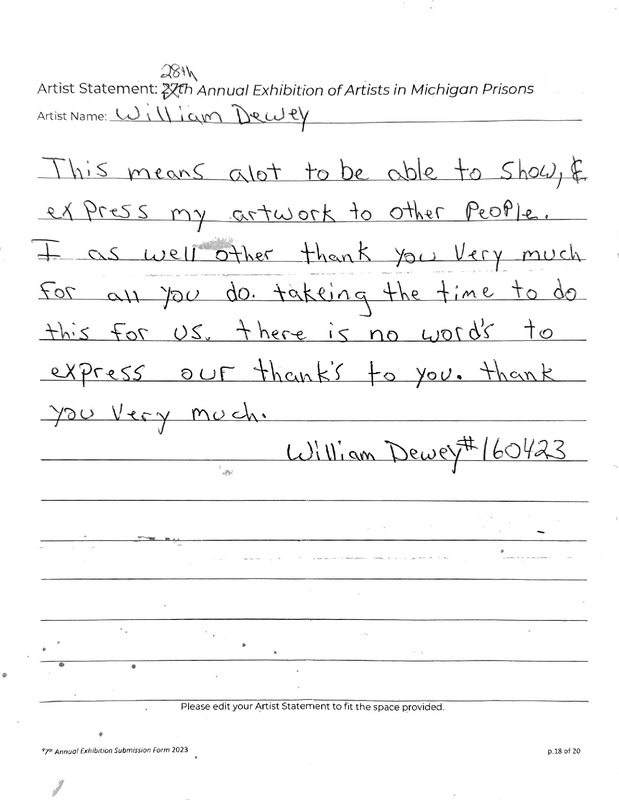 28th
Artist Statement: 27th Annual Exhibition of Artists in Michigan Prisons
Artist Name: William Dewey
This means alot to be able to show, &
express my artwork to other People.
I as well other thank you Very much
for all you do. takeing the time to do
this for us. there is no word's to
express our thank's to you. thank
you Very much.
William Dewey #160423
Please edit your Artist Statement to fit the space provided.
Annual Exhibition Submission Form 2023
p.18 of 20